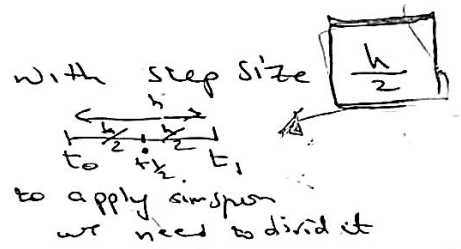 with step size h/2
h
h/2 h/2
t₀ t½ t₁
to apply simspon
we need to divid it